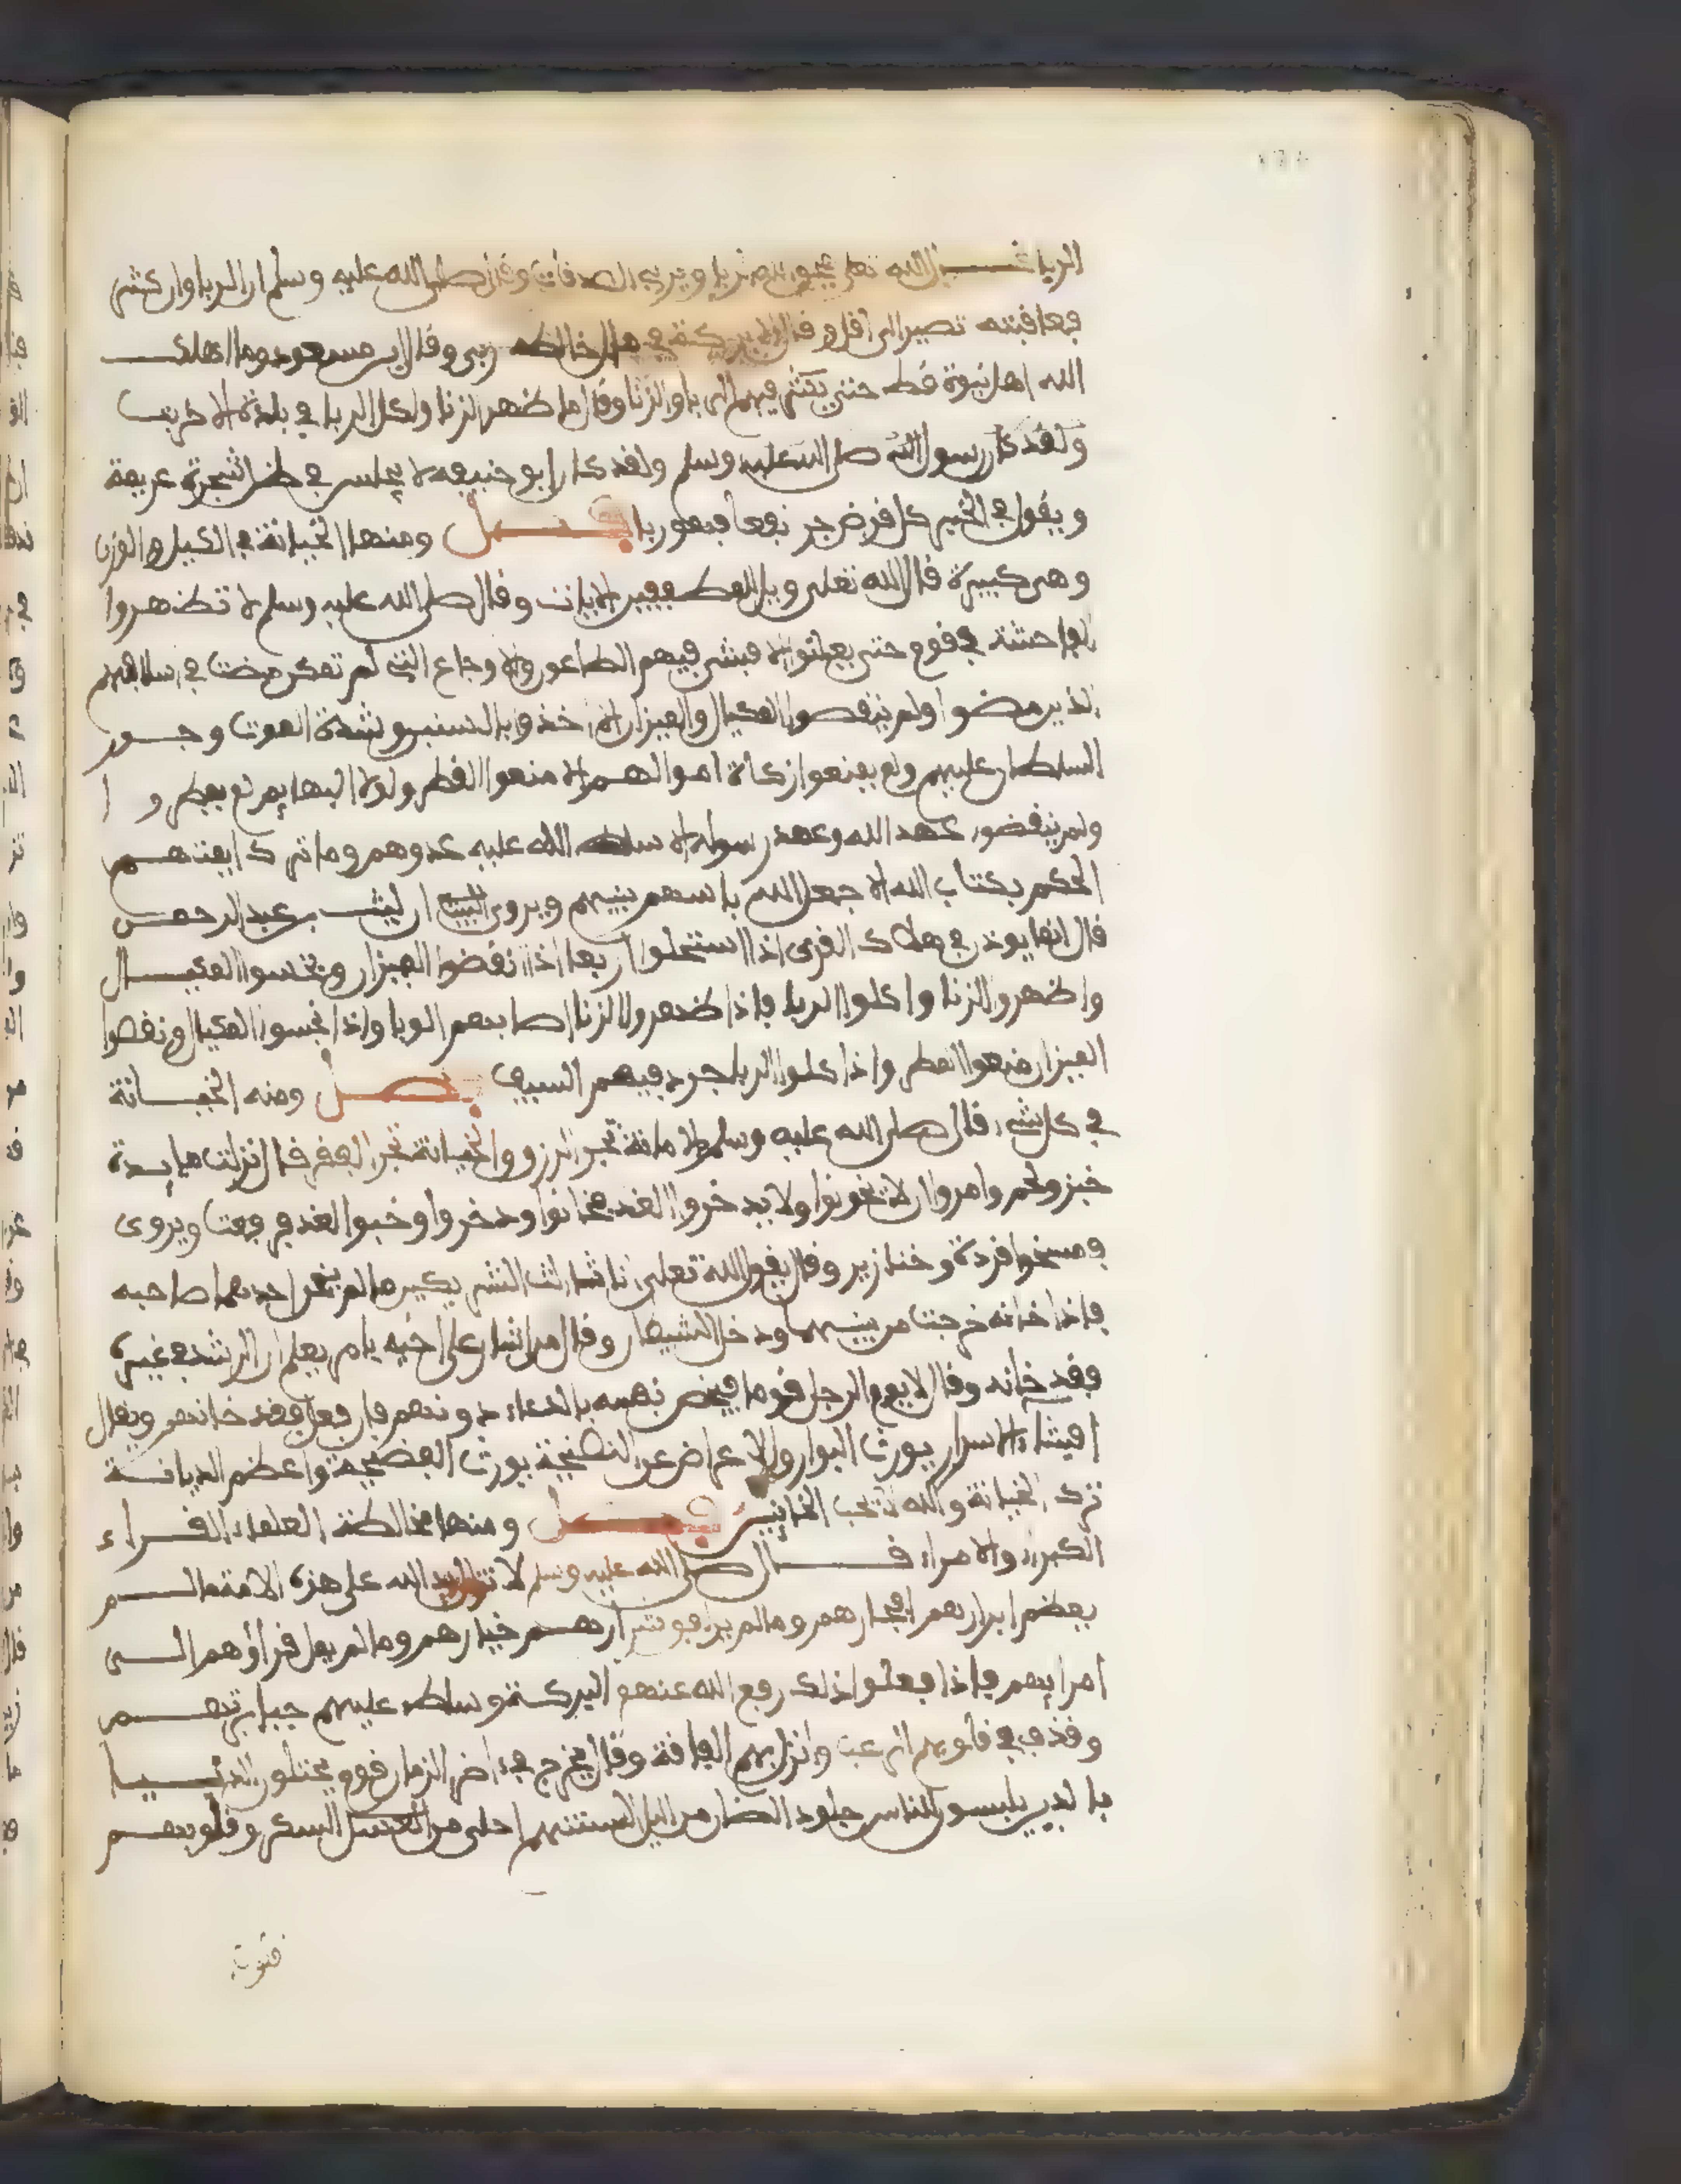 الربا قال الله تعلى يمحق الله الربا ويربي الصدقات وقال صلى الله عليه وسلم ان الربا وان كثر
فعاقبته تصير الى اقل وقال لا بركة في مال خالطه ربى وقال ابن مسعود وما اهلك
الله اهل نبوة قط حتى يكثر فيهم الربا والزنا وقال ما ظهر الزنا واكل الربا في بلدة الا خربت
ولقد كان رسول الله صلى الله عليه وسلم ولقد كان ابو حنيفه لا يجلس في ظل شجرة غريمه
ويقول في الخبر كل قرض جر نفعا فهو ربا فصل ومنها الخيانة في الكيل والوزن
وهي كبيرة قال الله تعلى ويل للمطففين الايات وقال صلى الله عليه وسلم لا تظهروا
الفاحشة في قوم حتى يعلنوا الا فشى فيهم الطاعون والاوجاع التي لم تكن مضت في اسلافهم
الذين مضوا ولم ينقصوا المكيال والميزان الا اخذوا بالسنين وشدة المونة وجور
السلطان عليهم ولم يمنعوا زكاة اموالهم الا منعوا القطر ولولا البهايم لم يمطروا
ولم ينقضوا عهد الله وعهد رسوله الا سلط الله عليه عدوهم وما ترك ايمتهم
الحكم بكتاب الله الا جعل الله باسهم بينهم ويروى ان ليث بن عبد الرحمن
قال انما يوذن في هلاك القرى اذا استحلوا اربعا اذا نقضوا الميزان وبخسوا المكيال
واظهروا الزنا واكلوا الربا فاذا ظهروا الزنا اصابهم الوبا واذا بخسوا المكيال ونقصوا
الميزان منعوا المطر واذا اكلوا الربا جرد فيهم السيف فصل ومنه الخيانة
في كل شيء قال صلى الله عليه وسلم الامانة تجر الرزق والخيانة تجر الفقر قال انزلت مايدة
خبز ولحم وامروا ان لا يخونوا ولا يدخروا لغد فخانوا ودخروا وخبوا لغد فرفعت ويروى
ومسخوا قردة وخنازير وقال يقول الله تعلى انا ثالث الشريكين ما لم يخن احدهما صاحبه
فاذا خانه خرجت من بينهما ودخل الشيطان وقال من اشار على اخيه بامر يعلم ان الرشد في غيره
فقد خانه وقال لا يوم الرجل قوما فيخص نفسه بالدعاء دونهم فان فعل فقد خانهم ويقال
افشاء الاسرار يورث البوار والاعراض عن النصيحة يورث الفضيحة واعظم الديانة
ترك الخيانة والله لا يحب الخاينين فصل ومنها مخالطة العلماء القراء
الكبراء والامراء قال صلى الله عليه وسلم لا تزال يد الله على هذه الامة ما لم
يعظم ابرارهم فجارهم وما لم يرافق شرارهم خيارهم وما لم يمل قراؤهم الى
امرايهم فاذا فعلوا ذلك رفع الله عنهم البركة وسلط عليهم جبابرتهم
وقذف في قلوبهم الرعب وانزل بهم الفاقة وقال يخرج في اخر الزمان قوم يختلون الدنيا
بالدين يلبسون للناس جلود الضان من اللين السنتهم احلى من العسل السكر وقلوبهم